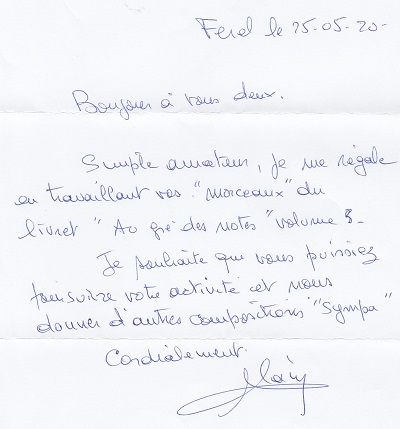 Ferel le 25-05-20-
Bonjour à vous deux.
Simple amateur, je me régale
en travaillant vos "morceaux" du
livret "Au gré des notes" volume 8-
Je souhaite que vous puissiez
poursuivre votre activité et nous
donner d'autres compositions "Sympa"
Cordialement.
Alain